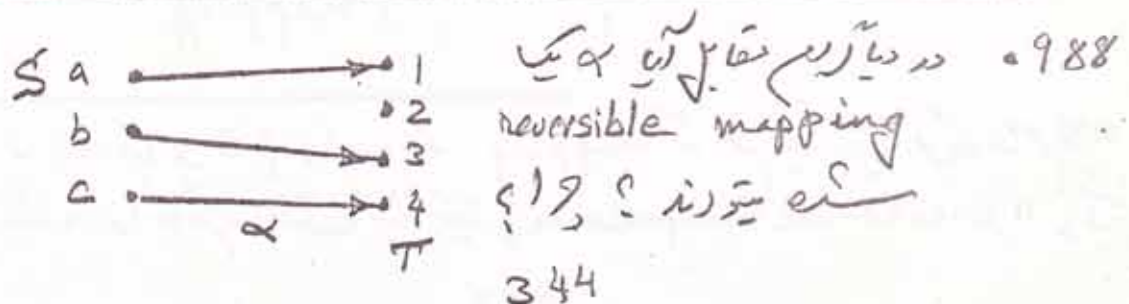 988. در دیاگرام مقابل آیا α یک
reversible mapping
شده میتواند ؟ چرا؟
S a 1
2
b 3
c 4
α T
344